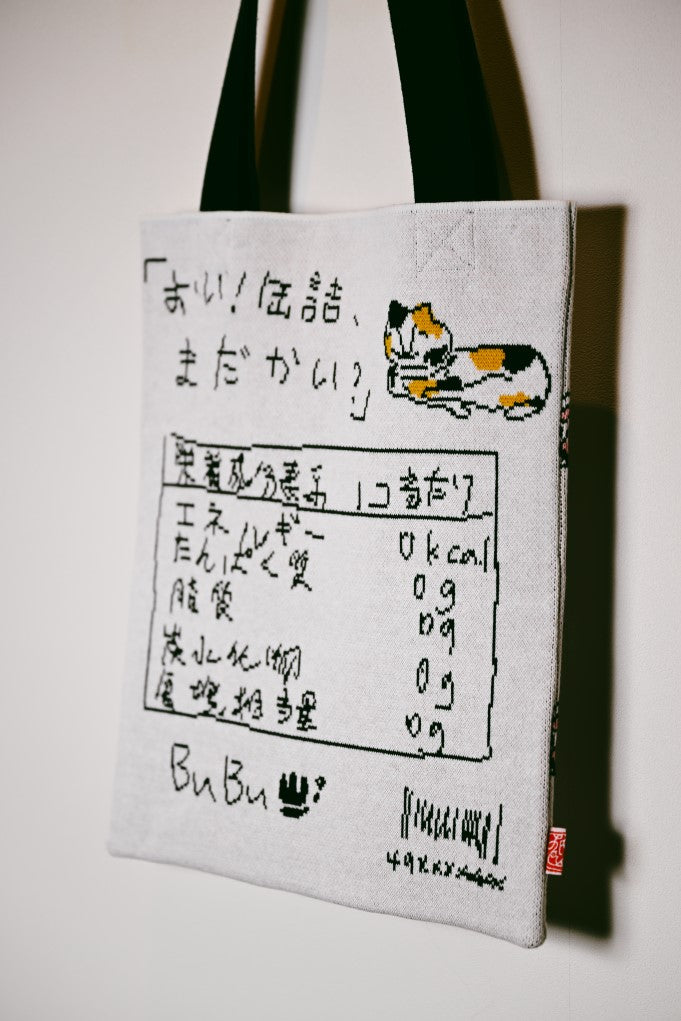 「おい！缶詰、
まだかい？」
栄養成分表示 1コあたり
エネルギー 0kcal
たんぱく質 0g
脂質 0g
炭水化物 0g
食塩相当量 0g
BuBu